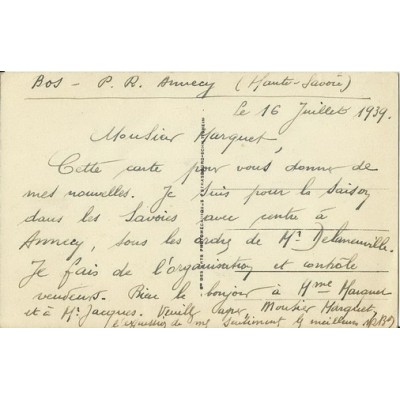 BOS - P. R. Annecy (Haute-Savoie)
le 16 Juillet 1939.
Monsieur Marquet,
Cette carte pour vous donner de
mes nouvelles. Je suis pour la saison
dans les Savoies avec centre à
Annecy, sous les ordre de Mr
Je fais de l'organisation et contrôle
vendeurs. Bien le bonjour à Mme
et à Mr Jacques. Veuillez Monsieur Marquet,
l'expression de mes sentiments les meilleurs